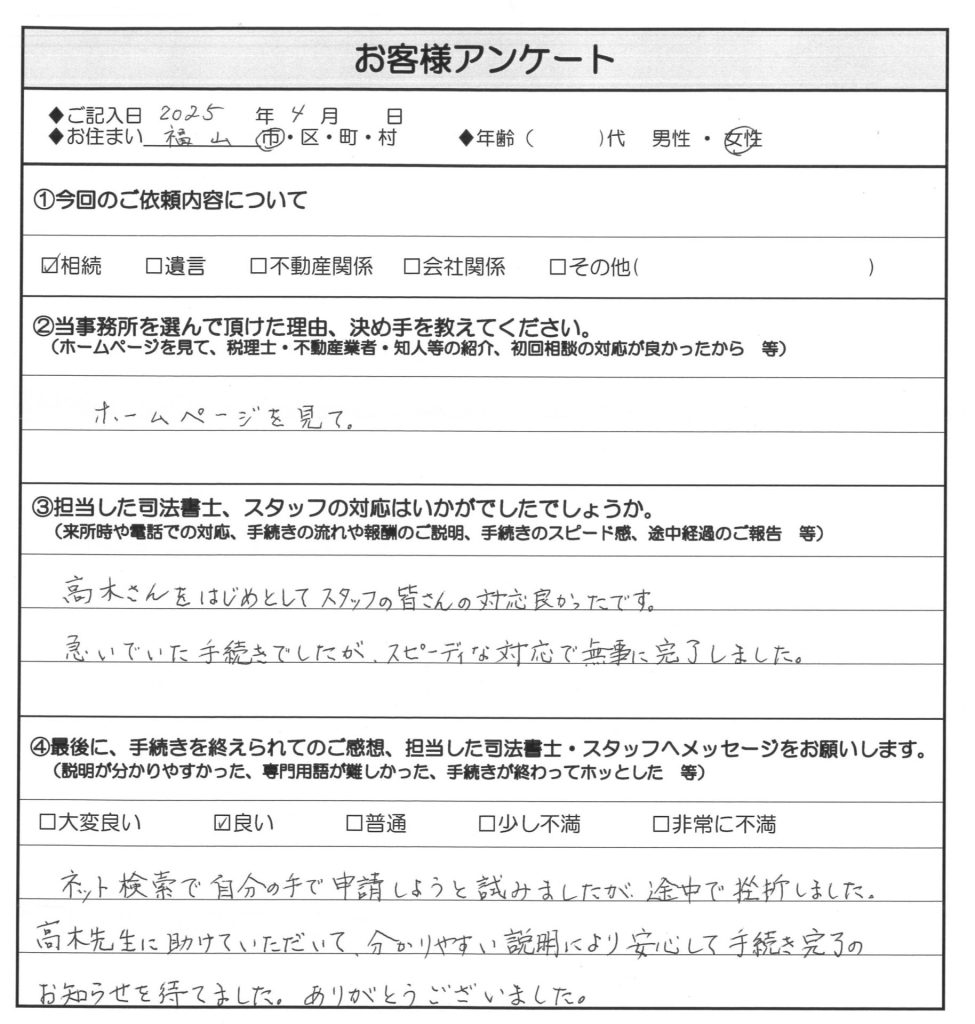 お客様アンケート
◆ご記入日 2025 年 4 月 日
◆お住まい 福山 市・区・町・村 ◆年齢( )代 男性・女性
①今回のご依頼内容について
☑相続 □遺言 □不動産関係 □会社関係 □その他( )
②当事務所を選んで頂けた理由、決め手を教えてください。
(ホームページを見て、税理士・不動産業者・知人等の紹介、初回相談の対応が良かったから 等)
ホームページを見て。
③担当した司法書士、スタッフの対応はいかがでしたでしょうか。
(来所時や電話での対応、手続きの流れや報酬のご説明、手続きのスピード感、途中経過のご報告 等)
高木さんをはじめとしてスタッフの皆さんの対応良かったです。
急いでいた手続きでしたが、スピーディな対応で無事に完了しました。
④最後に、手続きを終えられてのご感想、担当した司法書士・スタッフへメッセージをお願いします。
(説明が分かりやすかった、専門用語が難しかった、手続きが終わってホッとした 等)
□大変良い ☑良い □普通 □少し不満 □非常に不満
ネット検索で自分の手で申請しようと試みましたが、途中で挫折しました。
高木先生に助けていただいて、分かりやすい説明により安心して手続き完了の
お知らせを待てました。ありがとうございました。